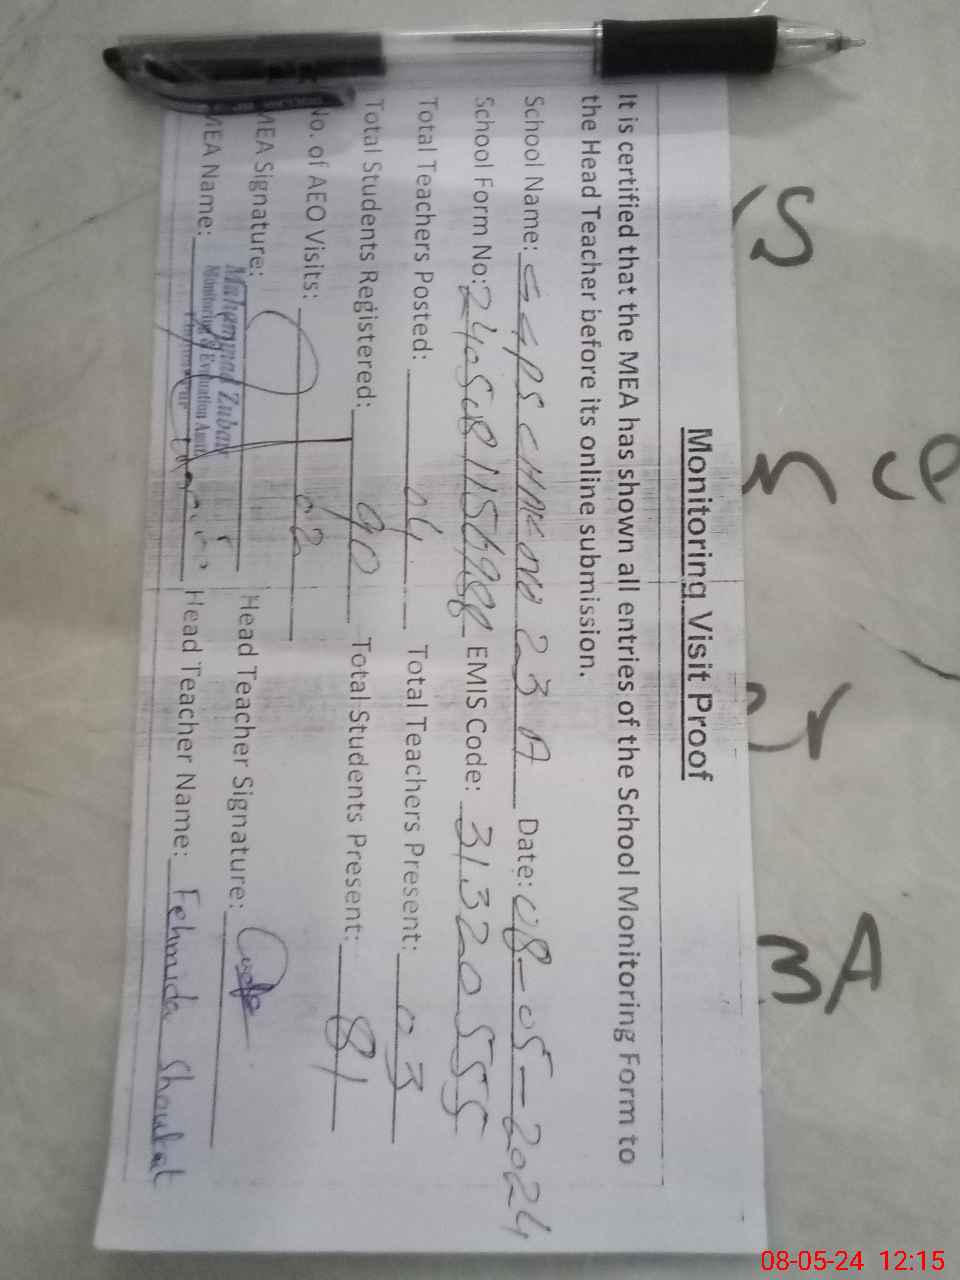 Monitoring Visit Proof
It is certified that the MEA has shown all entries of the School Monitoring Form to
the Head Teacher before its online submission.
School Name: GGPS CHAK NO 223 A Date: 08-05-2024
School Form No: EMIS Code: 31320555
Total Teachers Posted: 04 Total Teachers Present: 03
Total Students Registered: 90 Total Students Present: 81
No. of AEO Visits: 02
MEA Signature: Head Teacher Signature:
MEA Name: Head Teacher Name: Fehmida Shoukat
Muhammad Zubair
Monitoring & Evaluation Assit
08-05-24 12:15